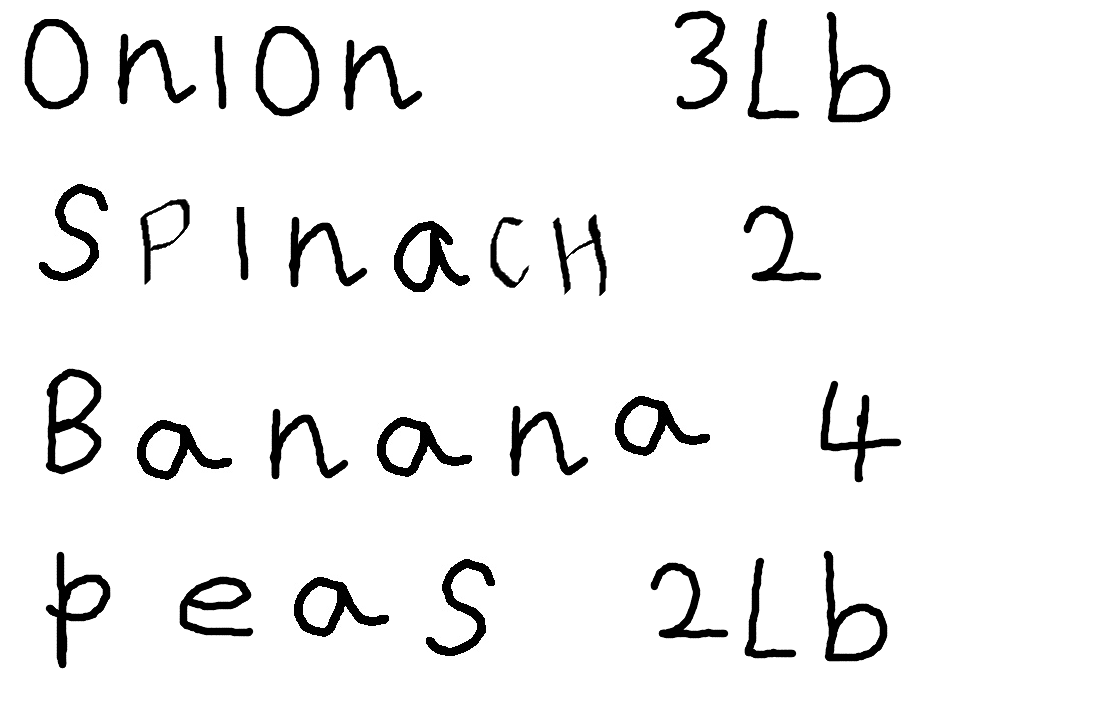 Onion 3Lb
SPinacH 2
Banana 4
peas 2Lb